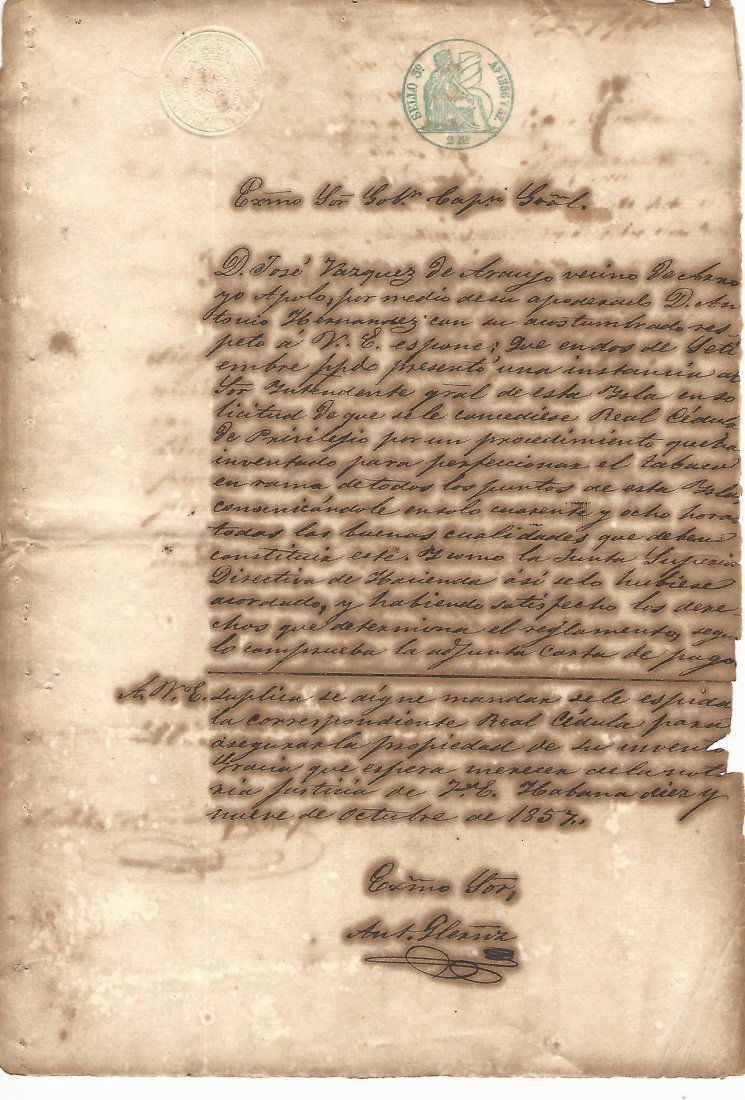 SELLO 3º AS 1856 Y 57
2 Rs
Exmo Sor Gobr Capn Gral.
D. José Vazquez de Araujo vecino de Arro
yo Apolo, por medio de su apoderado D. An
tonio Hernandez con su acostumbrado res
peto á V. E. espone: Que en dos de Seti
embre ppdo presentó una instancia al
Sor Yntendente gral de esta Ysla en so
licitud de que se le concediese Real Cédula
de Privilejio por un procedimiento que ha
inventado para perfeccionar el tabaco
en rama de todos los puntos de esta Ysla
comunicándole en solo cuarenta y ocho horas
todas las buenas cualidades que deben
constituir este. Y como la Junta Superior
Directiva de Hacienda ási se lo hubiese
acordado, y habiendo satisfecho los dere
chos que determina el reglamento, segun
lo comprueba la adjunta carta de pago
A. V. E. suplica se digne mandar se le espida
la correspondiente Real Cédula para
asegurar la propiedad de su invento
Gracia que espera merecer de la noto
ria justicia de V. E. Habana diez y
nueve de Octubre de 1857.
Exmo Sor,
Ant. Hernz